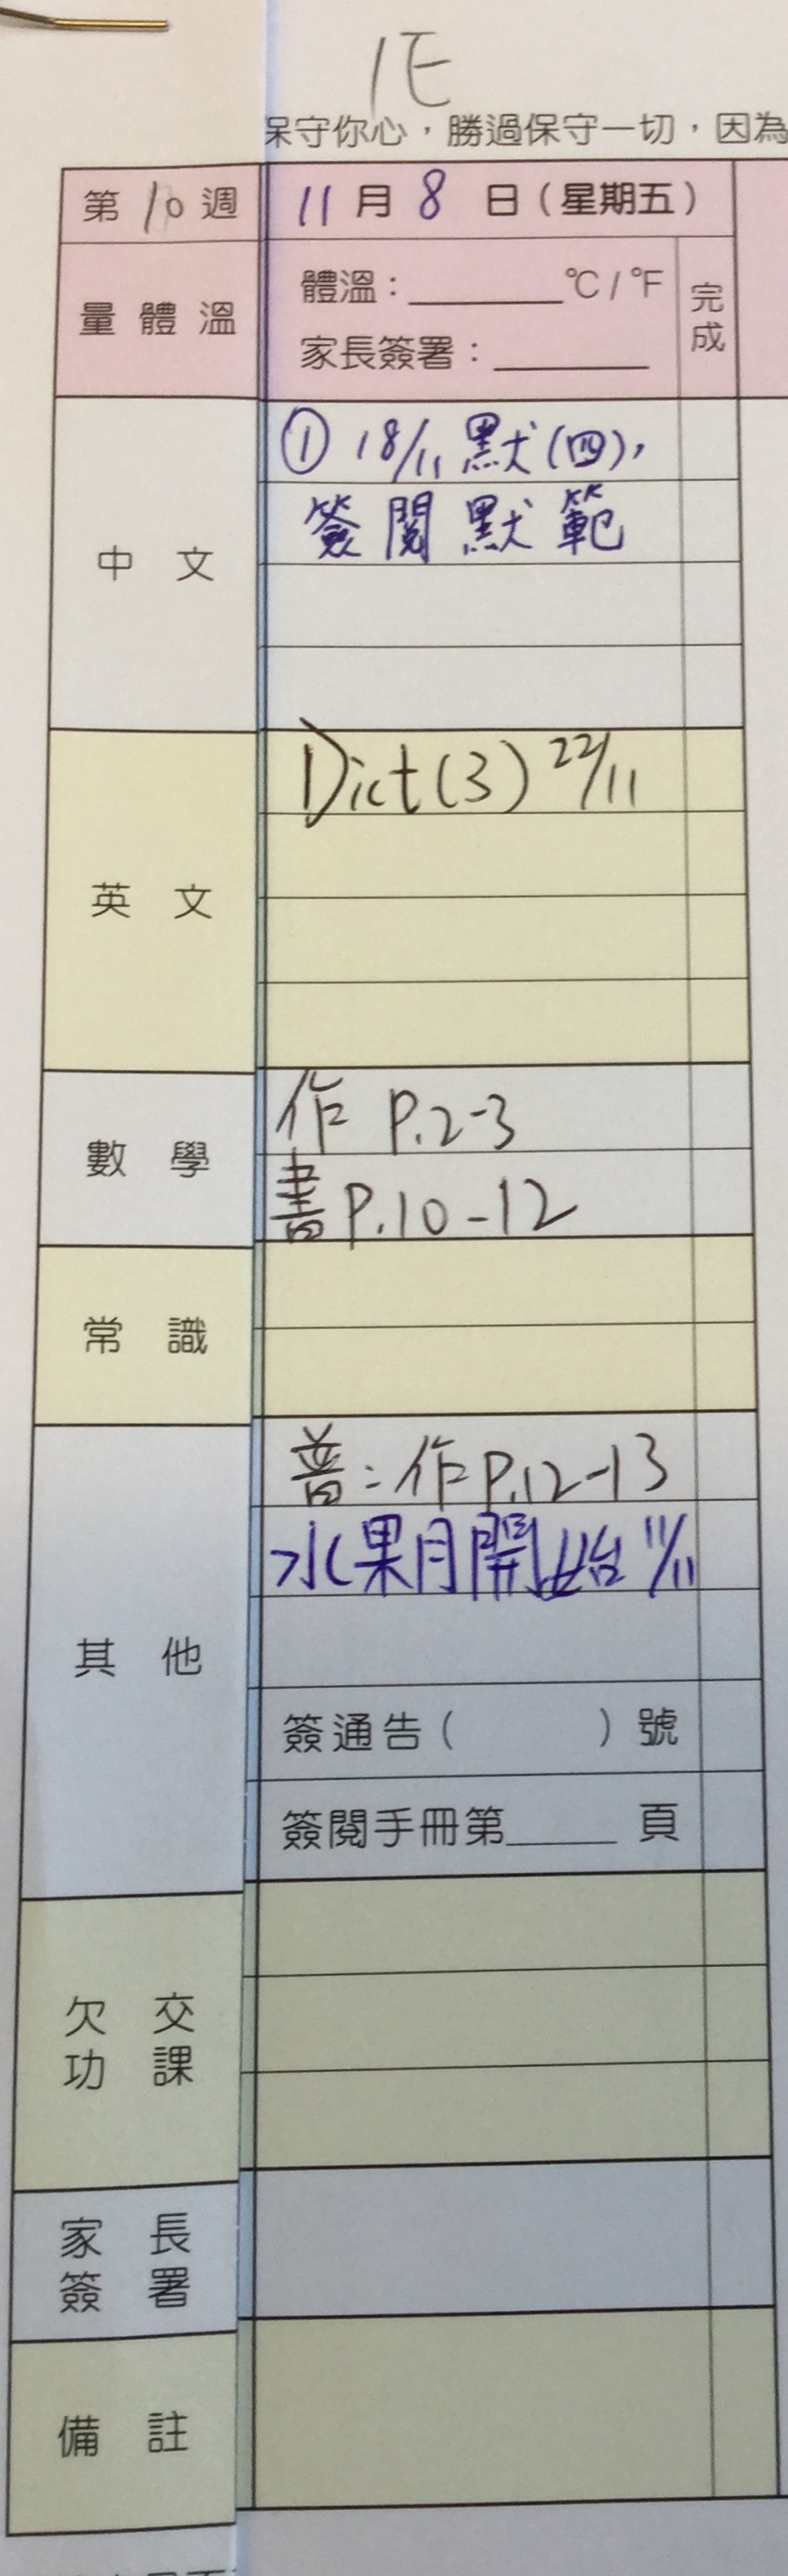 1E
保守你心，勝過保守一切，因為
第10週 11月8日（星期五）
量體溫 體溫：______°C / °F 完成
家長簽署：______
中文 ① 18/11 默(四),
簽閱默範
英文 Dict(3) 22/11
數學 作 P.2-3
書 P.10-12
常識
其他 普：作P.12-13
水果月開始 11/11
簽通告（ ）號
簽閱手冊第_____頁
欠交功課
家長簽署
備註